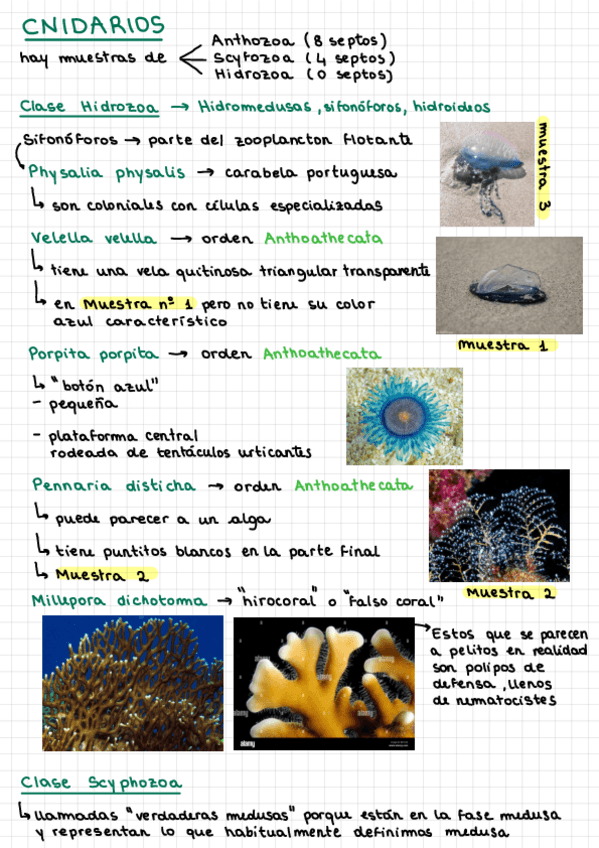 CNIDARIOS
hay muestras de
Anthozoa (8 septos)
Scyfozoa (4 septos)
Hidrozoa (0 septos)
Clase Hidrozoa → Hidromedusas, sifonóforos, hidroideos
Sifonóforos → parte del zooplancton flotante
Physalia physalis → carabela portuguesa
son coloniales con células especializadas
muestra 3
Velella velella → orden Anthoathecata
tiene una vela quitinosa triangular transparente
en Muestra nº 1 pero no tiene su color
azul característico
muestra 1
Porpita porpita → orden Anthoathecata
"botón azul"
- pequeña
- plataforma central
rodeada de tentáculos urticantes
Pennaria disticha → orden Anthoathecata
puede parecer a un alga
tiene puntitos blancos en la parte final
Muestra 2
Muestra 2
Millepora dichotoma → "hirocoral" o "falso coral"
Estos que se parecen
a pelitos en realidad
son pólipos de
defensa, llenos
de nematocistes
alamy
alamy
alamy
Clase Scyphozoa
llamadas "verdaderas medusas" porque están en la fase medusa
y representan lo que habitualmente definimos medusa